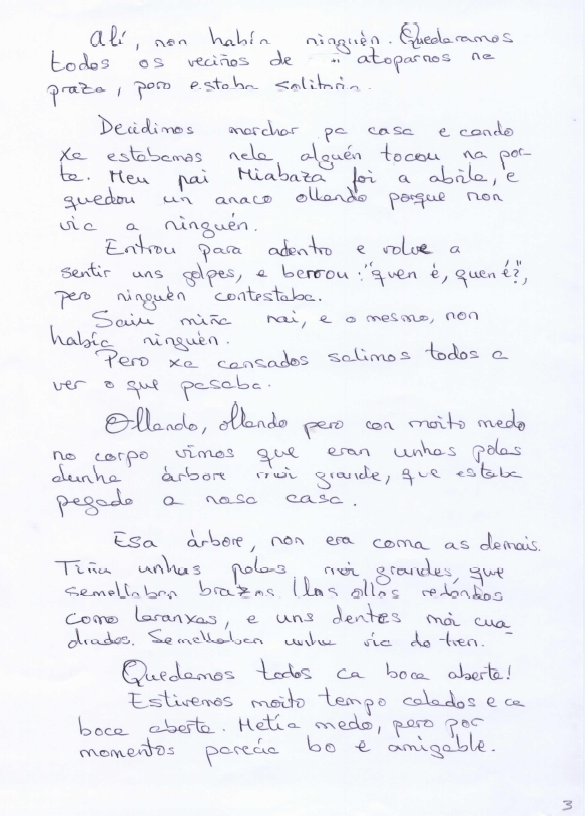 Alí, non había ninguén. Quedaramos
todos os veciños de atoparnos na
praza, pero estaba solitaria.
Decidimos marchar pa casa e cando
xa estabamos nela alguén tocou na por-
ta. Meu pai Miabaza foi a abrila, e
quedou un anaco ollando porque non
vía a ninguén.
Entrou para adentro e volve a
sentir uns golpes, e berrou: "quen é, quen é?",
pero ninguén contestaba.
Saíu miña nai, e o mesmo, non
había ninguén.
Pero xa cansados salimos todos a
ver o que pasaba.
Ollando, ollando pero con moito medo
no corpo vimos que eran unhas polas
dunha árbore moi grande, que estaba
pegado a nosa casa.
Esa árbore, non era coma as demais.
Tiña unhas polas moi grandes, que
semellaban brazos. Uns ollos redondos
como laranxas, e uns dentes moi cua-
drados. Semellaban unha vía do tren.
Quedamos todos ca boca aberta!
Estivemos moito tempo calados e ca
boca aberta. Metía medo, pero por
momentos parecía bo e amigable.
3